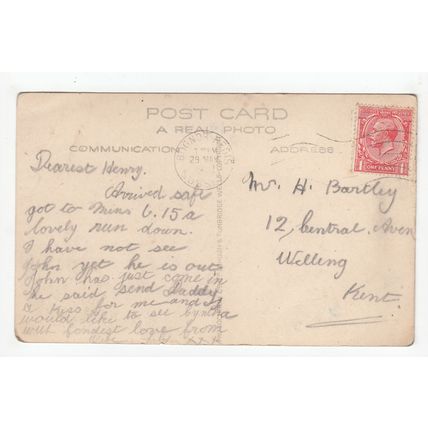 POST CARD
A REAL PHOTO
COMMUNICATION
ADDRESS
BOGNOR REGIS
29
ONE PENNY
Dearest Henry.
Arrived safe
got to Mins 6.15 a
lovely run down.
I have not see
John yet he is out
John has just come in
he said send Daddy
a kiss for me and I
would like to see
with fondest love from
x x x
Mr. H. Bartley
12, Central Aven
Welling
Kent.